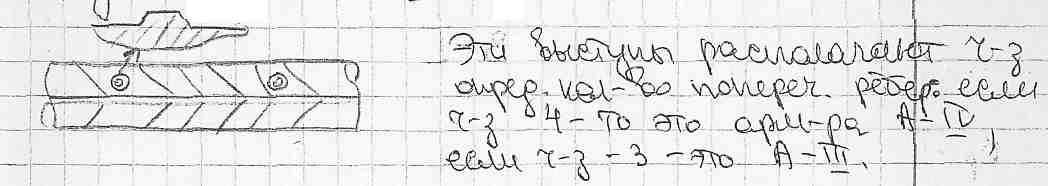 Эти выступы располагают ч-з
опред. кол-во попереч. рёбер: если
ч-з 4 - то это арм-ра А-IV,
если ч-з - 3 - это А-III.